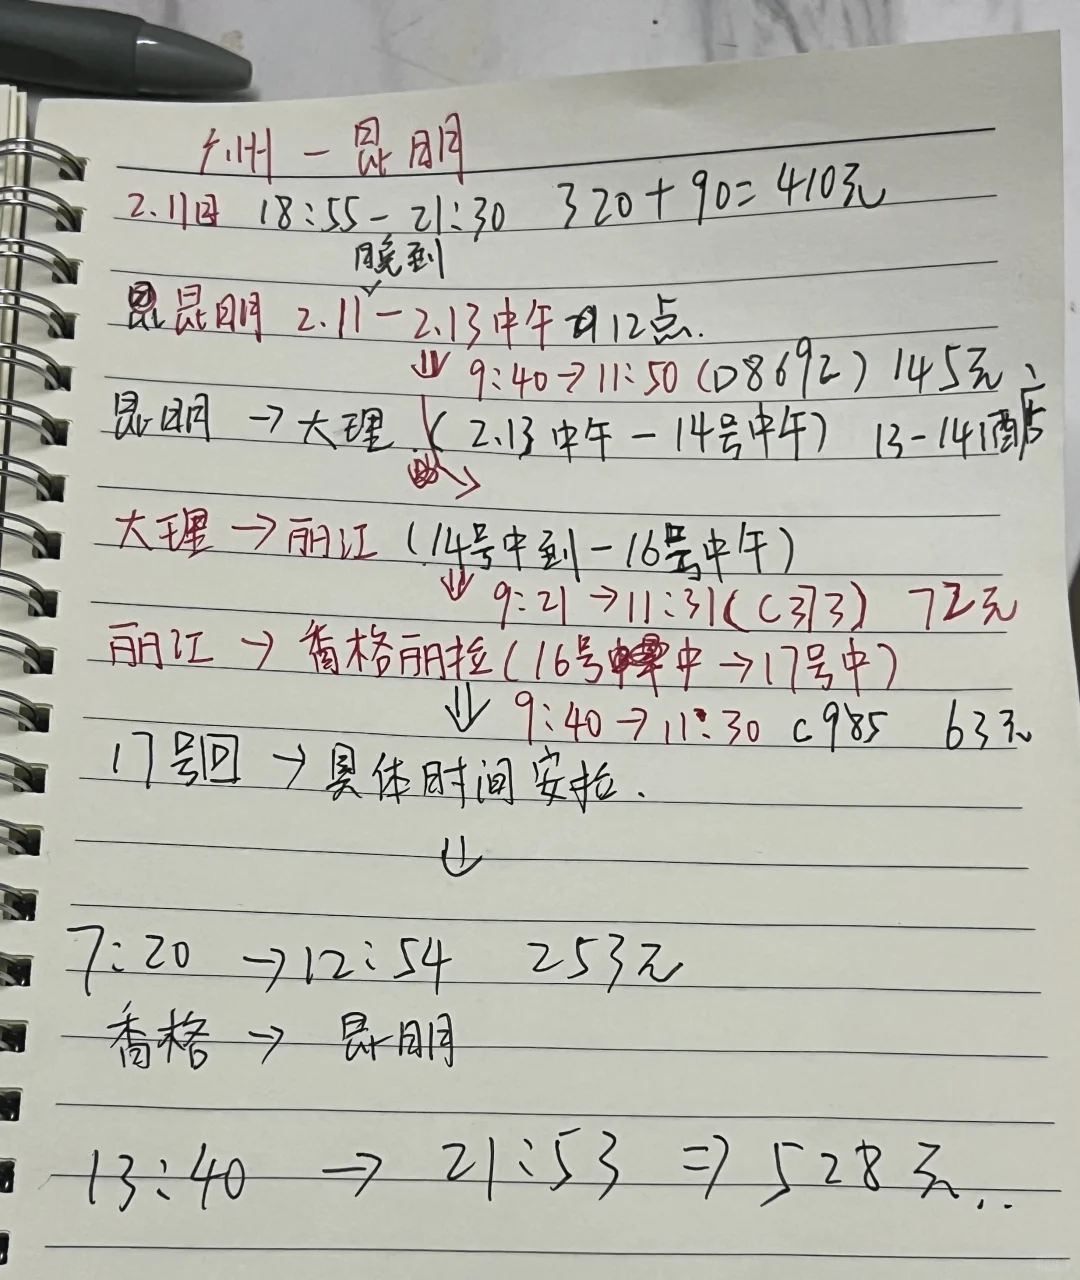 广州 — 昆明
2.11日 18:55 - 21:30 320+90=410元
晚到
昆明 2.11 - 2.13中午 12点.
⇓ 9:40→11:50 (D8692) 145元
昆明 → 大理 (2.13中午 - 14号中午) 13-14酒店
大理 → 丽江 (14号中到 - 16号中午)
⇓ 9:21→11:31(C373) 72元
丽江 → 香格丽拉(16号中→17号中)
⇓ 9:40→11:30 C985 63元
17号回 → 具体时间安拍.
↓
7:20 →12:54 253元
香格 → 昆明
13:40 → 21:53 ⇒ 528元..